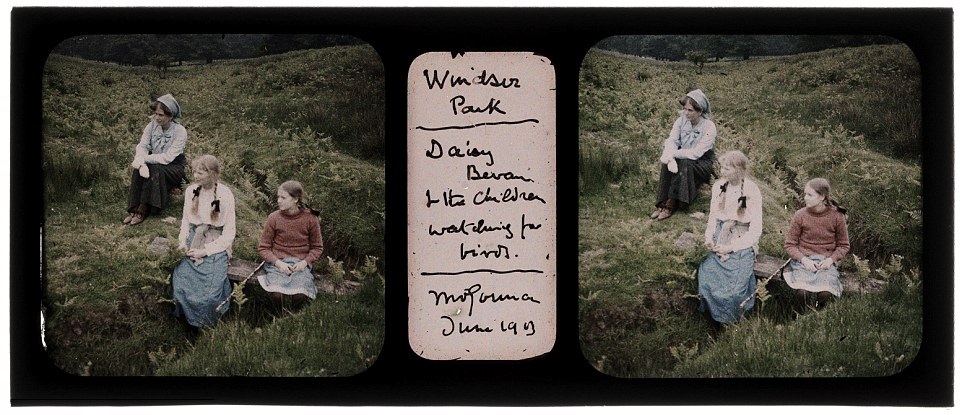 Windsor
Park
Daisy
Bevan
& the children
watching for
birds.
June 1913